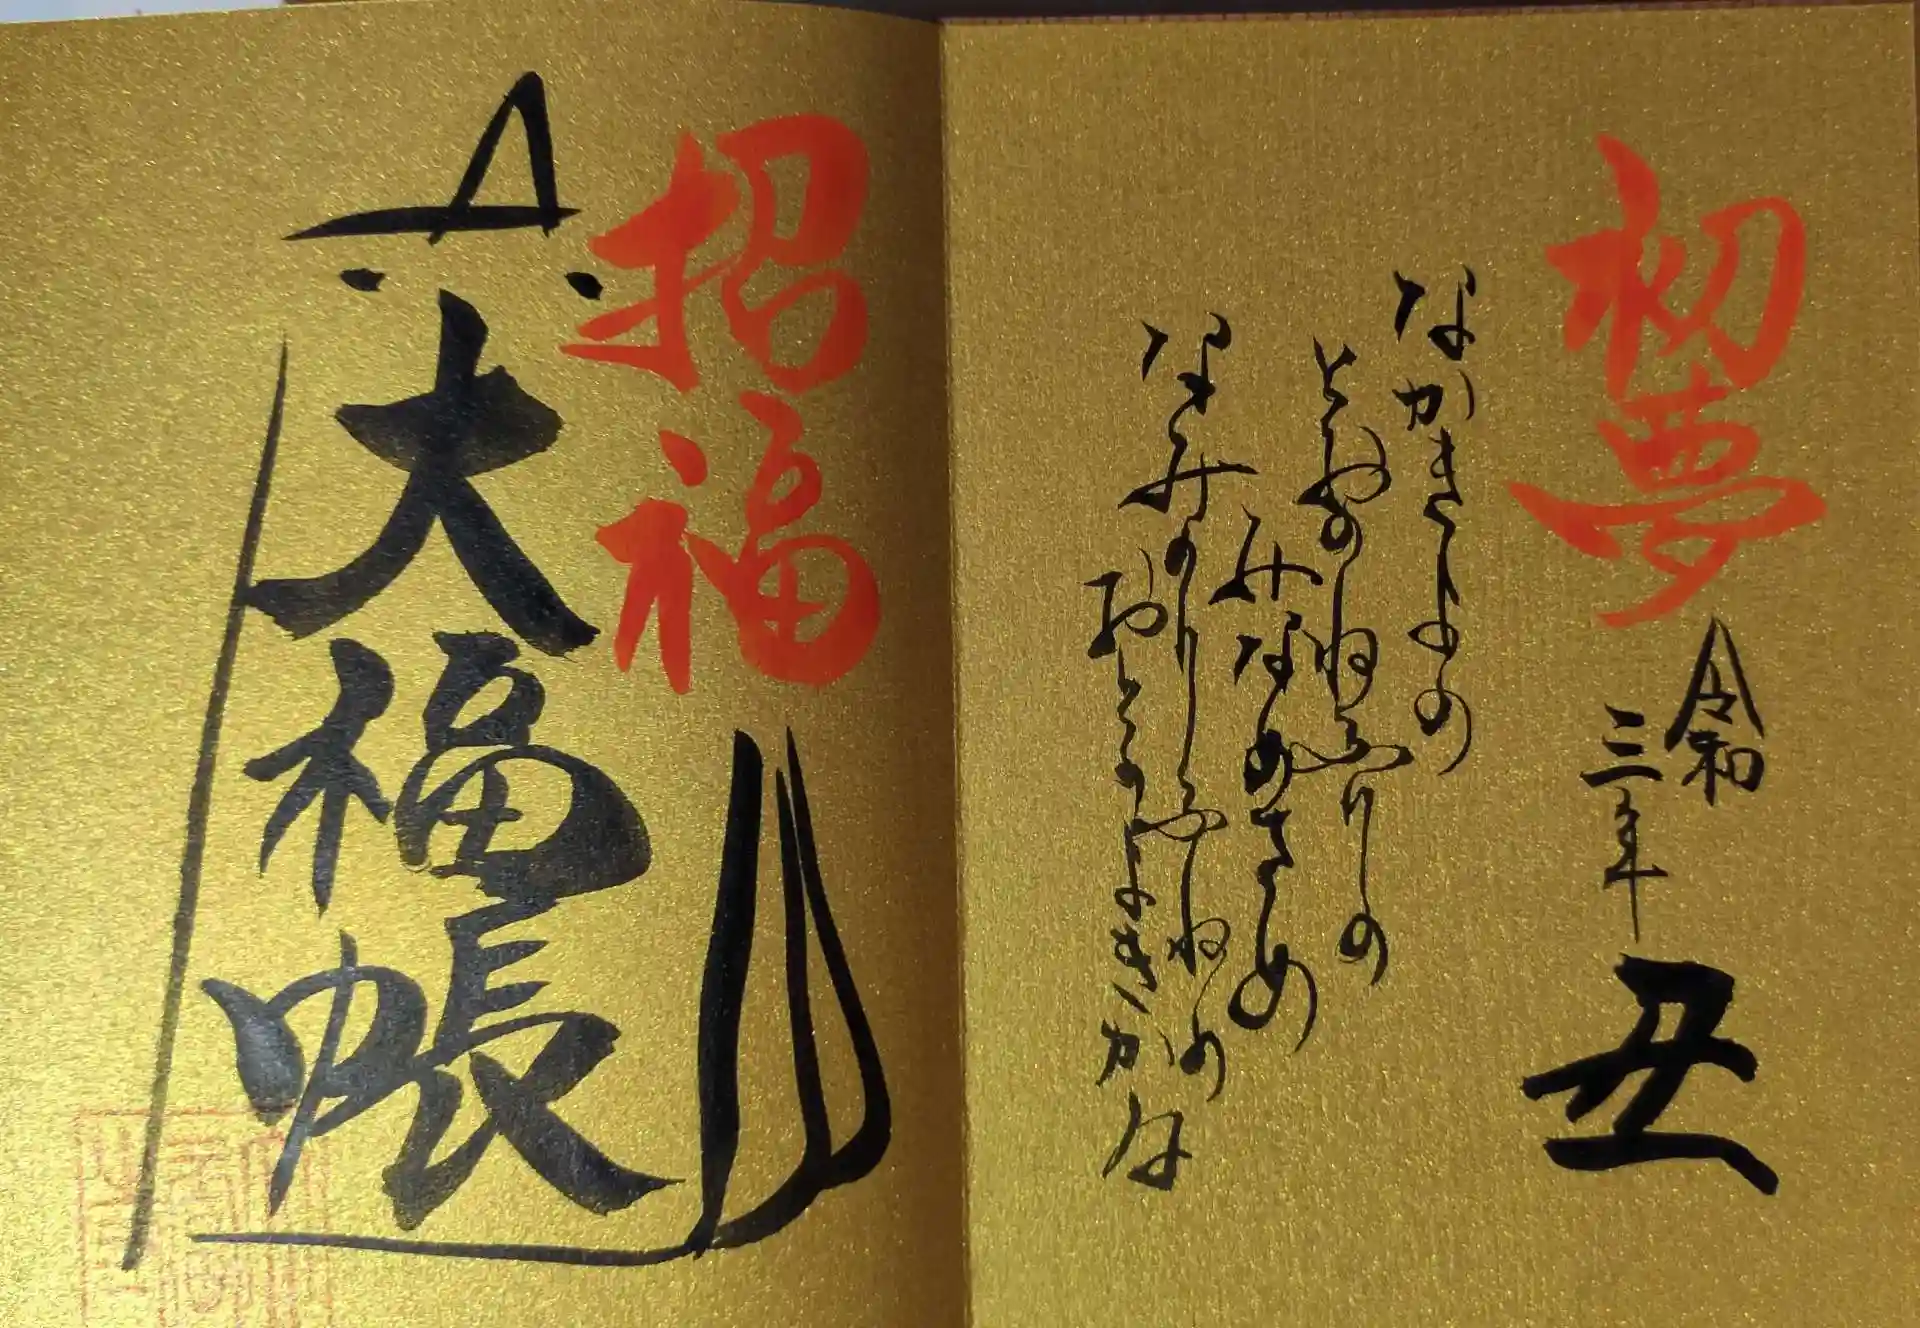 初夢
令和
三年
丑
なかきよの
とおのねふりの
みなめさめ
なみのりふねの
おとのよきかな
招福
大福帳